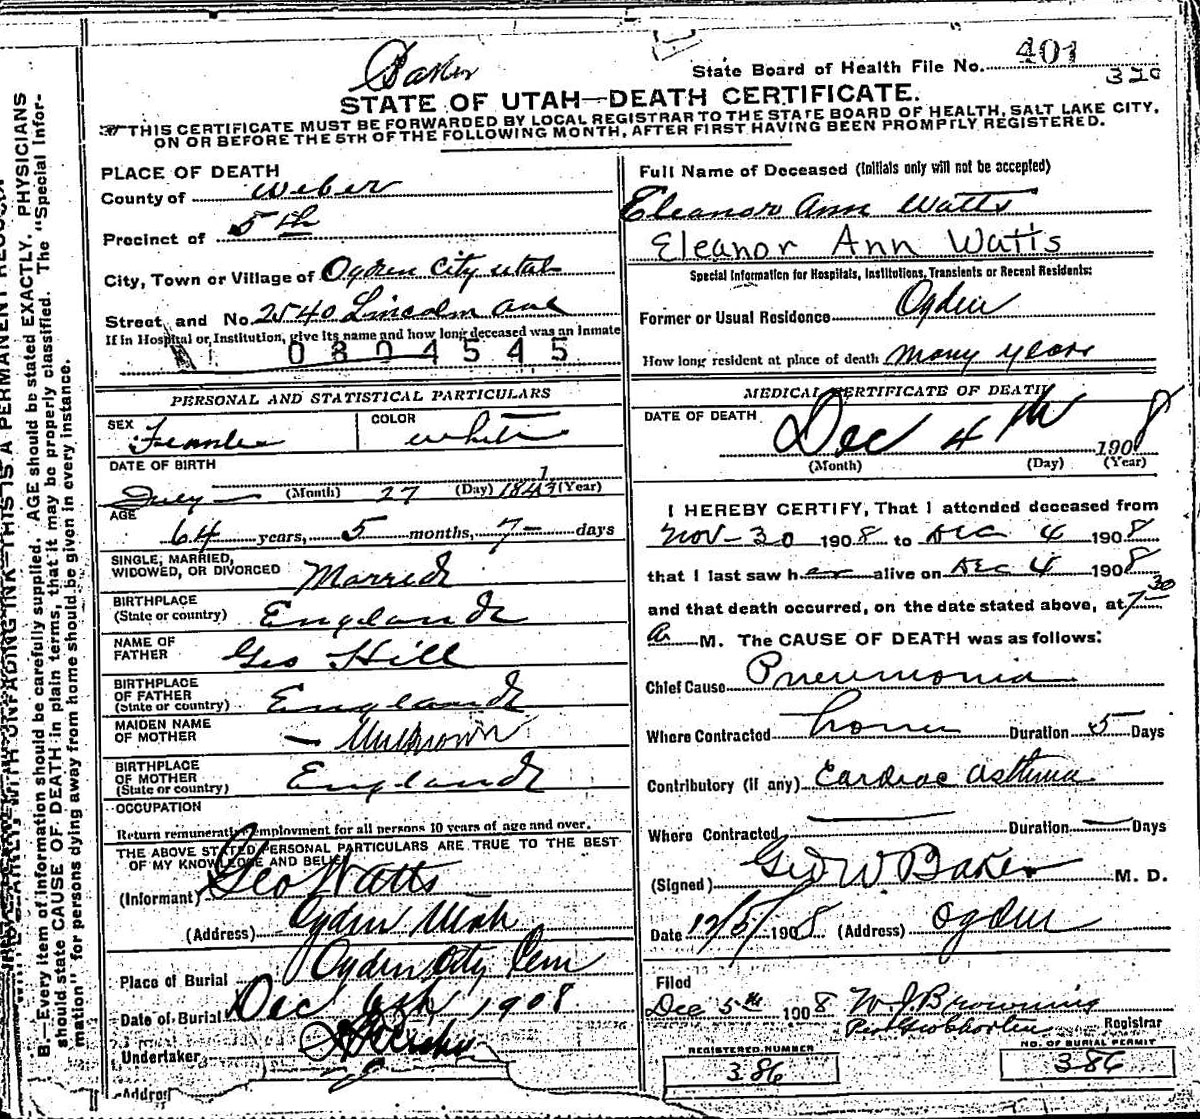 Baker
State Board of Health File No. 401
320
STATE OF UTAH—DEATH CERTIFICATE.
THIS CERTIFICATE MUST BE FORWARDED BY LOCAL REGISTRAR TO THE STATE BOARD OF HEALTH, SALT LAKE CITY,
ON OR BEFORE THE 5TH OF THE FOLLOWING MONTH, AFTER FIRST HAVING BEEN PROMPTLY REGISTERED.
PLACE OF DEATH
County of Weber
Precinct of 5th
City, Town or Village of Ogden City Utah
Street and No. 2540 Lincoln Ave
If in Hospital or Institution, give its name and how long deceased was an inmate
0804545
PERSONAL AND STATISTICAL PARTICULARS
SEX Female COLOR white
DATE OF BIRTH
July (Month) 27 (Day) 1843 (Year)
AGE
64 years, 5 months, 7 days
SINGLE, MARRIED,
WIDOWED, OR DIVORCED Married
BIRTHPLACE
(State or country) England
NAME OF
FATHER Geo Hill
BIRTHPLACE
OF FATHER
(State or country) England
MAIDEN NAME
OF MOTHER — Unknown
BIRTHPLACE
OF MOTHER
(State or country) England
OCCUPATION
Return remunerative employment for all persons 10 years of age and over.
THE ABOVE STATED PERSONAL PARTICULARS ARE TRUE TO THE BEST
OF MY KNOWLEDGE AND BELIEF
(Informant) Geo Watts
(Address) Ogden Utah
Place of Burial Ogden City Cem
Date of Burial Dec 6th 1908
Undertaker
Address
Full Name of Deceased (Initials only will not be accepted)
Eleanor Ann Watts
Eleanor Ann Watts
Special Information for Hospitals, Institutions, Transients or Recent Residents:
Former or Usual Residence Ogden
How long resident at place of death many years
MEDICAL CERTIFICATE OF DEATH
DATE OF DEATH Dec 4th 1908
(Month) (Day) (Year)
I HEREBY CERTIFY, That I attended deceased from
Nov-30 1908 to Dec 4 1908
that I last saw her alive on Dec 4 1908
and that death occurred, on the date stated above, at 7-30
a. M. The CAUSE OF DEATH was as follows:
Chief Cause Pneumonia
Where Contracted home Duration 5 Days
Contributory (if any) Cardiac Asthma
Where Contracted — Duration — Days
(Signed) Geo W. Baker M. D.
Date 12/5/1908 (Address) Ogden
Filed
Dec 5th 1908 W. J. Browning
Registrar
REGISTERED NUMBER
386
NO. OF BURIAL PERMIT
386
B.—Every item of information should be carefully supplied. AGE should be stated EXACTLY. PHYSICIANS
should state CAUSE OF DEATH in plain terms, that it may be properly classified. The "Special Infor-
mation" for persons dying away from home should be given in every instance.